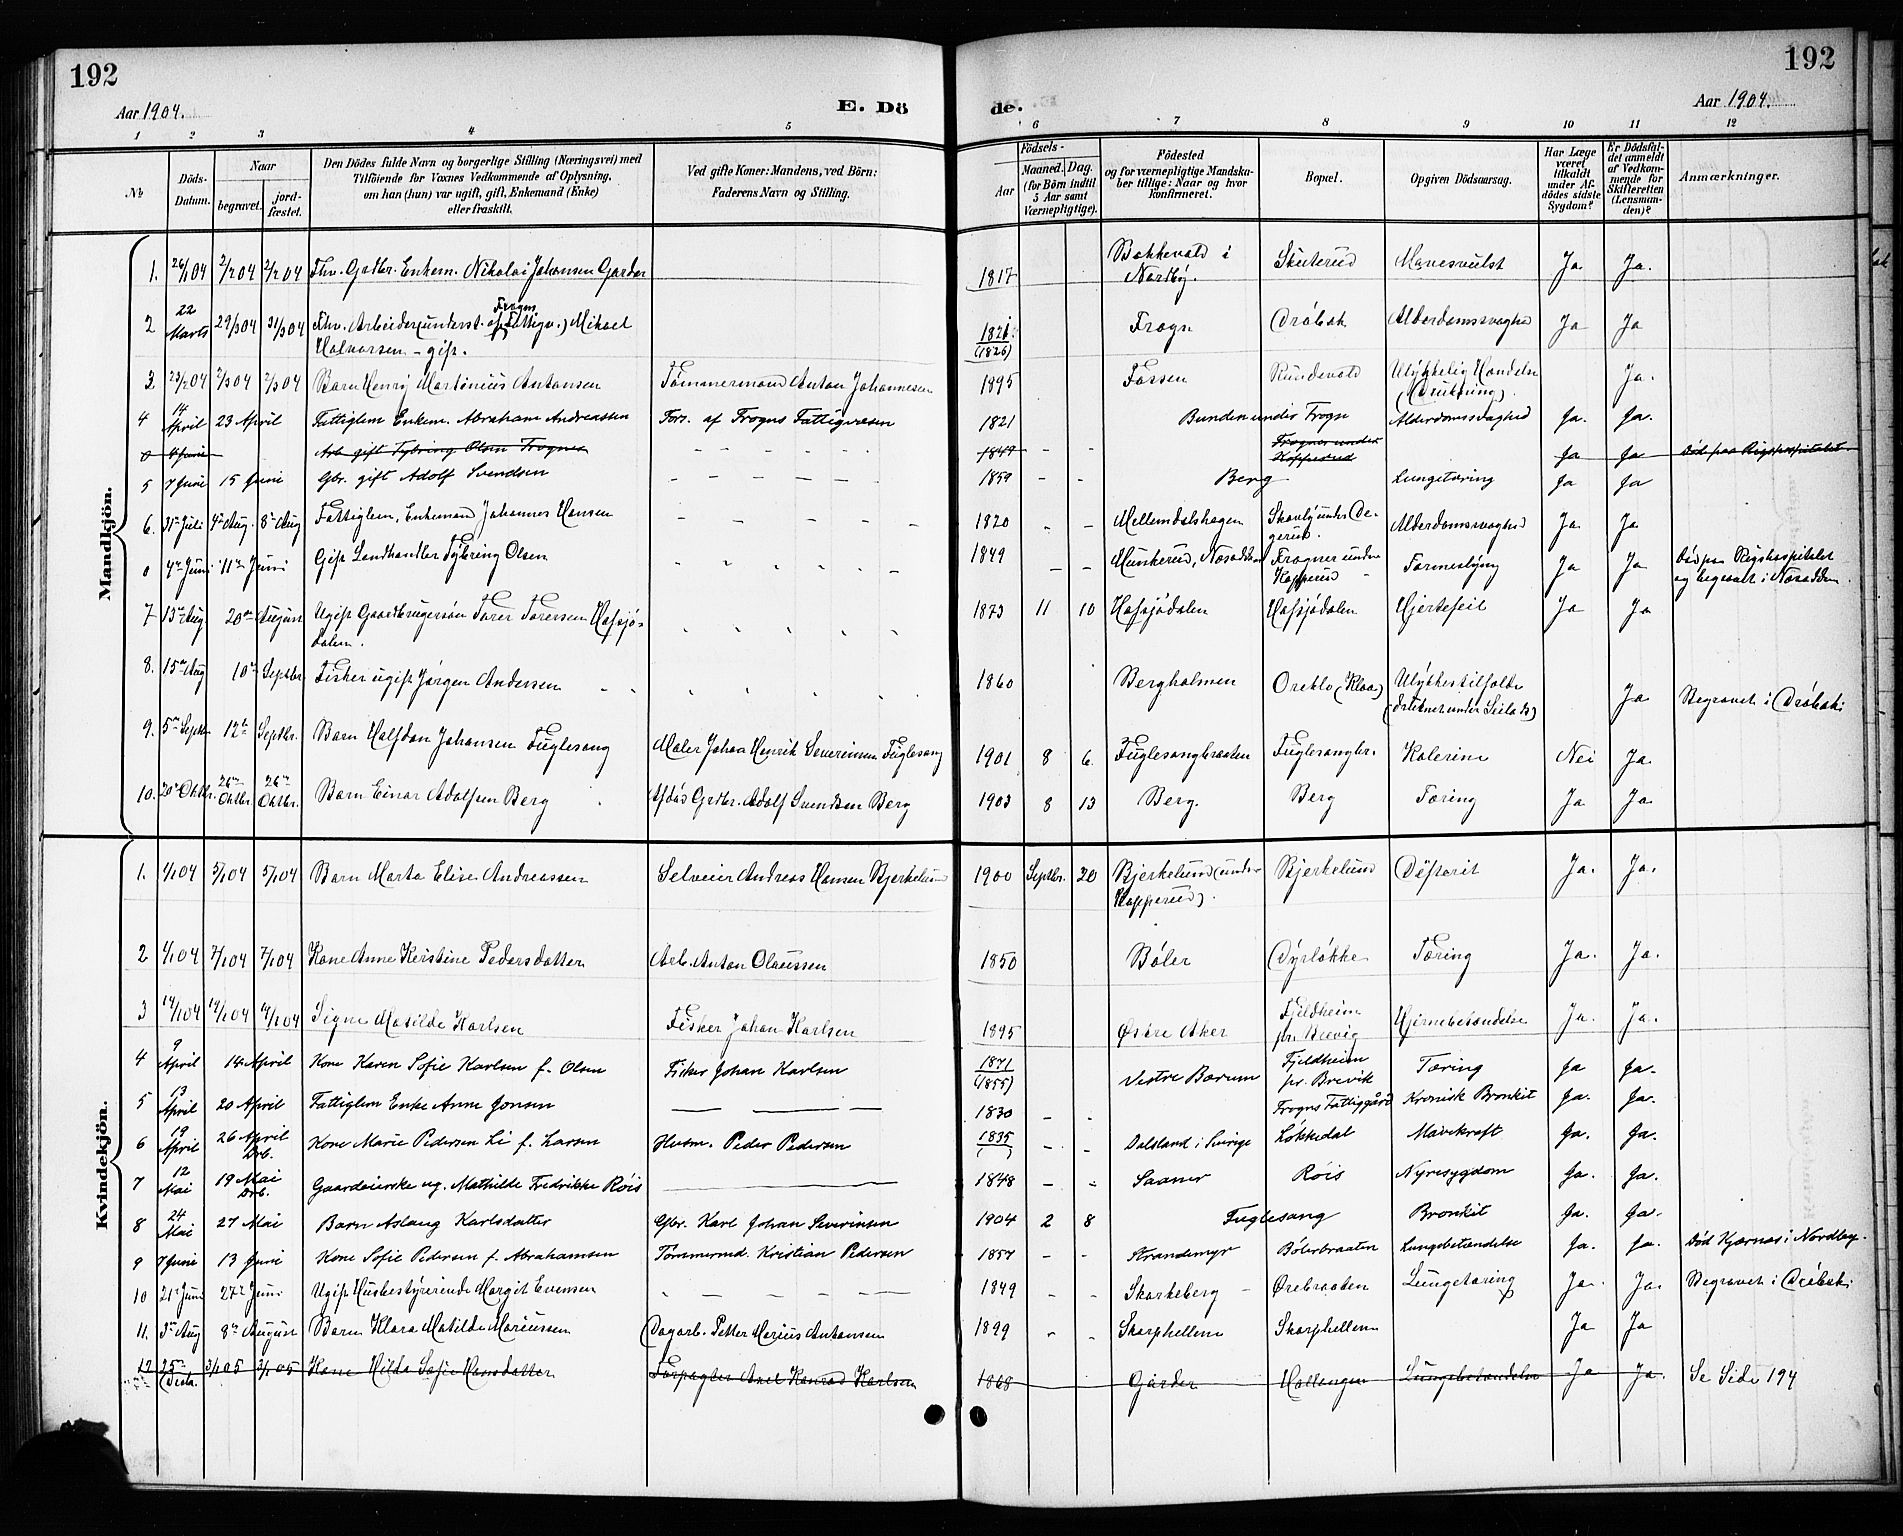 192
192
Aar 1904.
E. Dö
de.
Aar 1904.
1 2 3 4 5 6 7 8 9 10 11 12
No
Döds-Datum.
Naar
begravet.
jordfæstet.
Den Dödes fulde Navn og borgerlige Stilling (Næringsvei) med
Tilföiende for Voxnes Vedkommende af Oplysning,
om han (hun) var ugift, gift, Enkemand (Enke)
eller fraskilt.
Ved gifte Koner: Mandens, ved Börn:
Faderens Navn og Stilling.
Födsels-
Aar
Maaned. Dag.
(for Börn indtil
5 Aar samt
Værnepligtige).
Födested
og for værnepligtige Mandskaber tillige: Naar og hvor
konfirmeret.
Bopæl.
Opgiven Dödsaarsag.
Har Læge
været
tilkaldt
under Afdödes sidste
Sygdom?
Er Dödsfaldet anmeldt
af Vedkommende for
Skifteretten
(Lensmanden)?
Anmærkninger.
Mandkjön.
1. 26/1 04 2/2 04 2/2 04 Fhv. Grdbr. Enkem. Nikolai Johansen Garder 1817 Bakkevold i Nordby. Skuterud Mavesvulst Ja Ja.
2 22 Marts 29/3 04 31/3 04 Fhv. Arbeider (underst. af Frogns Fattigv.) Mikael Halvorsen - gift. 1821: (1826) Frogn Dröbak Alderdomssvaghed Ja Ja
3. 23/2 04 2/3 04 2/3 04 Barn Henry Martinius Antonsen Tømmermand Anton Johannesen 1895 Fossen Rundevold Ulykkelig Hændelse (Drukning). Ja.
4 14 April 23 April Fattiglem Enkem. Abraham Andreassen Fors. af Frogns Fattigvæsen 1821 Bunden under Frogn Alderdomssvaghed Ja. Ja.
0 4 Juni Arb. gift Tybring Olsen Frogner 1849 Frogner under Kopperud Ja Ja Død paa Rigshospitalet.
5 7 Juni 15 Juni Gbr. gift Adolf Svendsen 1859 Berg Lungetæring Ja Ja
6. 31te Juli 4de Aug. 8de Aug Fattiglem, Enkemand Johannes Hansen 1820 Mellemdalshagen Skovly under Degerud. Alderdomssvaghed Ja Ja
0 4de Juni 11te Juni Gift Landhandler Tybring Olsen 1849 Munkerud, Næsodden Frogner under Kopperud Ja Ja Død paa Rigshospitalet og begravet i Næsodden.
7 13de Aug. 20de August Ugift Gaardbrugersøn Torer Torersen Hafsjødalen. 1873 11 10 Hafsjödalen Hafsjödalen Hjertefeil Ja Ja
8. 15de Aug 10de Septbr. Fisker ugift Jørgen Andersen 1860 Bergholmen Oreklo (Kloa) Ulykkestilfælde (druknet under Seilads) Ja Begravet i Dröbak.
9. 5te Septbr. 12te Septbr. Barn Halfdan Johansen Fuglesang Maler Johan Henrik Severinsen Fuglesang 1901 8 6. Fuglesangbraaten Fuglesangbr. Kolerine Nei Ja.
10. 20de Oktbr. 26de Oktbr. 26de Oktbr. Barn Einar Adolfsen Berg Afdøs Grdbr. Adolf Svendsen Berg 1903 8 13 Berg. Berg Tæring Ja Ja.
Kvindekjön.
1. 1/1 04 5/1 04 5/1 04 Barn Marta Elise Andreassen Selveier Andreas Hansen Bjerkelund 1900 Septbr. 20 Bjerkelund (under Kopperud). Bjerkelund Difterit Ja. Ja.
2 1/1 04 7/1 04 7/1 04 Kone Anne Kerstine Pedersdatter Arb. Anton Olaussen 1850 Bøler Dyrløkke Tæring Ja. Ja.
3 14/1 04 19/1 04 19/1 04 Signe Matilde Karlsen Fisker Johan Karlsen 1895 Østre Aker Fjeldheim pr. Brevig Hjernebetændelse Ja. Ja.
4 9 April 14 April Kone Karen Sofie Karlsen f. Olsen Fisker Johan Karlsen 1871 (1855) Vestre Bærum Fjeldheim pr. Brevik Tæring Ja Ja.
5 13 April 20 April Fattiglem Enke Anne Jonsen 1830 Frogns Fattiggård Kronisk Bronkit Ja. Ja.
6 19 April 26 April Drb. Kone Marie Pedersen Li f. Larsen Husm. Peder Pedersen 1835 ( ) Dalsland i Sverige Løkkedal Mavekræft Ja. Ja.
7 12 Mai 19 Mai Drb. Gaardeierske ug. Mathilde Fredrikke Røis 1848 Saaner Røis Nyresygdom Ja. Ja.
8 24 Mai 27 Mai Barn Aslaug Karlsdatter Gbr. Karl Johan Severinsen 1904 2 8 Fuglesang Bronkit Ja. Ja.
9 7 Juni 13 Juni Kone Sofie Pedersen f. Abrahamsen Tømmermd. Kristian Pedersen 1857 Strandemyr Bølerbraaten Lungebetændelse Ja. Ja. Død Kjærnæs i Nordby.
10 21de Juni 27de Juni Ugift Husbestyrerinde Margit Evensen 1849 Skorkeberg Ørebraaten Lungetæring Ja. Ja. Begravet i Dröbak.
11. 3de Aug 8de August Barn Klara Matilde Mariussen Dagarb. Petter Marius Antonsen 1899 Skorphellene Skorphellene Ja Ja
12 25de Decbr. 3/1 05 3/1 05 Kone Hilda Sofie Hansdatter Forpagter Axel Konrad Karlsen 1868 Garder Hallangen Lungebetændelse Ja Ja. Se Side 194